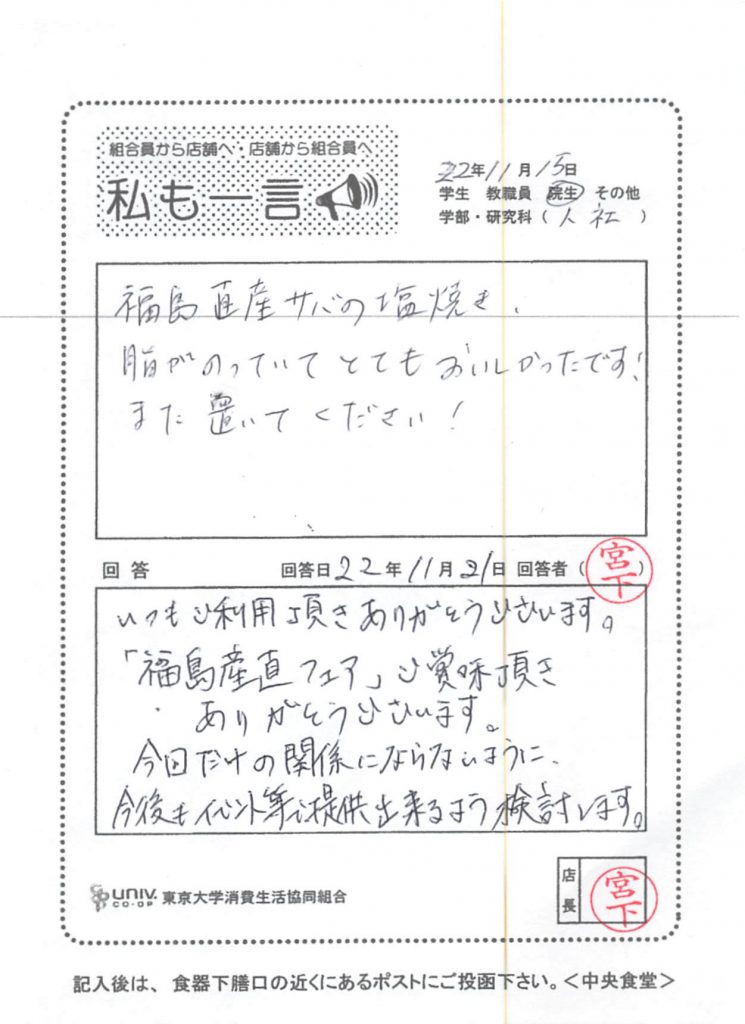 組合員から店舗へ・店舗から組合員へ
私も一言
22年11月15日
学生 教職員 院生 その他
学部・研究科（人社）
福島直産サバの塩焼き、
脂がのっていてとてもおいしかったです!
また置いてください!
回答 回答日22年11月21日 回答者（宮下）
いつもご利用頂きありがとうございます。
「福島産直フェア」ご賞味頂き
ありがとうございます。
今回だけの関係にならないように、
今後もイベント等で提供出来るよう検討します。
UNIV. CO-OP 東京大学消費生活協同組合
店長 宮下
記入後は、食器下膳口の近くにあるポストにご投函下さい。＜中央食堂＞